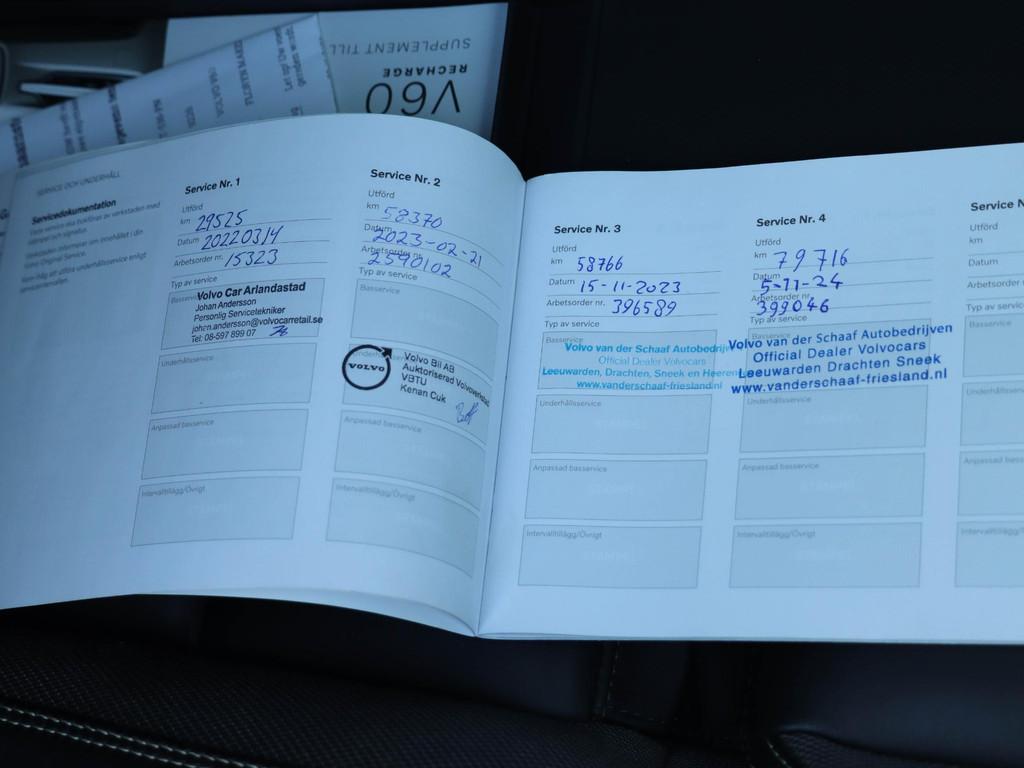 SUPPLEMENT TILL
RECHARGE
V60
VOLVO V60
SERVICE OCH UNDERHÅLL
Servicedokumentation
Volvo Original Service.
Service Nr. 1
Utförd
km 29525
Datum 20220314
Arbetsorder nr. 15323
Typ av service
Volvo Car Arlandastad
Johan Andersson
Personlig Servicetekniker
johan.andersson@volvocarretail.se
Tel: 08-597 899 07
Underhållsservice
Anpassad basservice
Intervalltillägg/Övrigt
Service Nr. 2
Utförd
km 58370
Datum 2023-02-21
Arbetsorder nr. 2590102
Typ av service
Basservice
VOLVO
Volvo Bil AB
Auktoriserad
VBTU
Kenan Cuk
Anpassad basservice
Intervalltillägg/Övrigt
Service Nr. 3
Utförd
km 58766
Datum 15-11-2023
Arbetsorder nr. 396589
Typ av service
Basservice
Volvo van der Schaaf
Official Dealer Volvocars
Leeuwarden, Drachten, Sneek en
www.vanderschaaf-friesland.nl
Underhållsservice
Anpassad basservice
Intervalltillägg/Övrigt
Service Nr. 4
Utförd
km 79716
Datum 5-11-24
Arbetsorder nr. 399046
Typ av service
Volvo van der Schaaf Autobedrijven
Official Dealer Volvocars
Leeuwarden Drachten Sneek
www.vanderschaaf-friesland.nl
Underhållsservice
Anpassad basservice
Intervalltillägg/Övrigt
Service N
Utförd
km
Datum
Arbetsorder
Typ av service
Basservice
Underhållsservice
Anpassad
Intervalltillägg/Övrigt